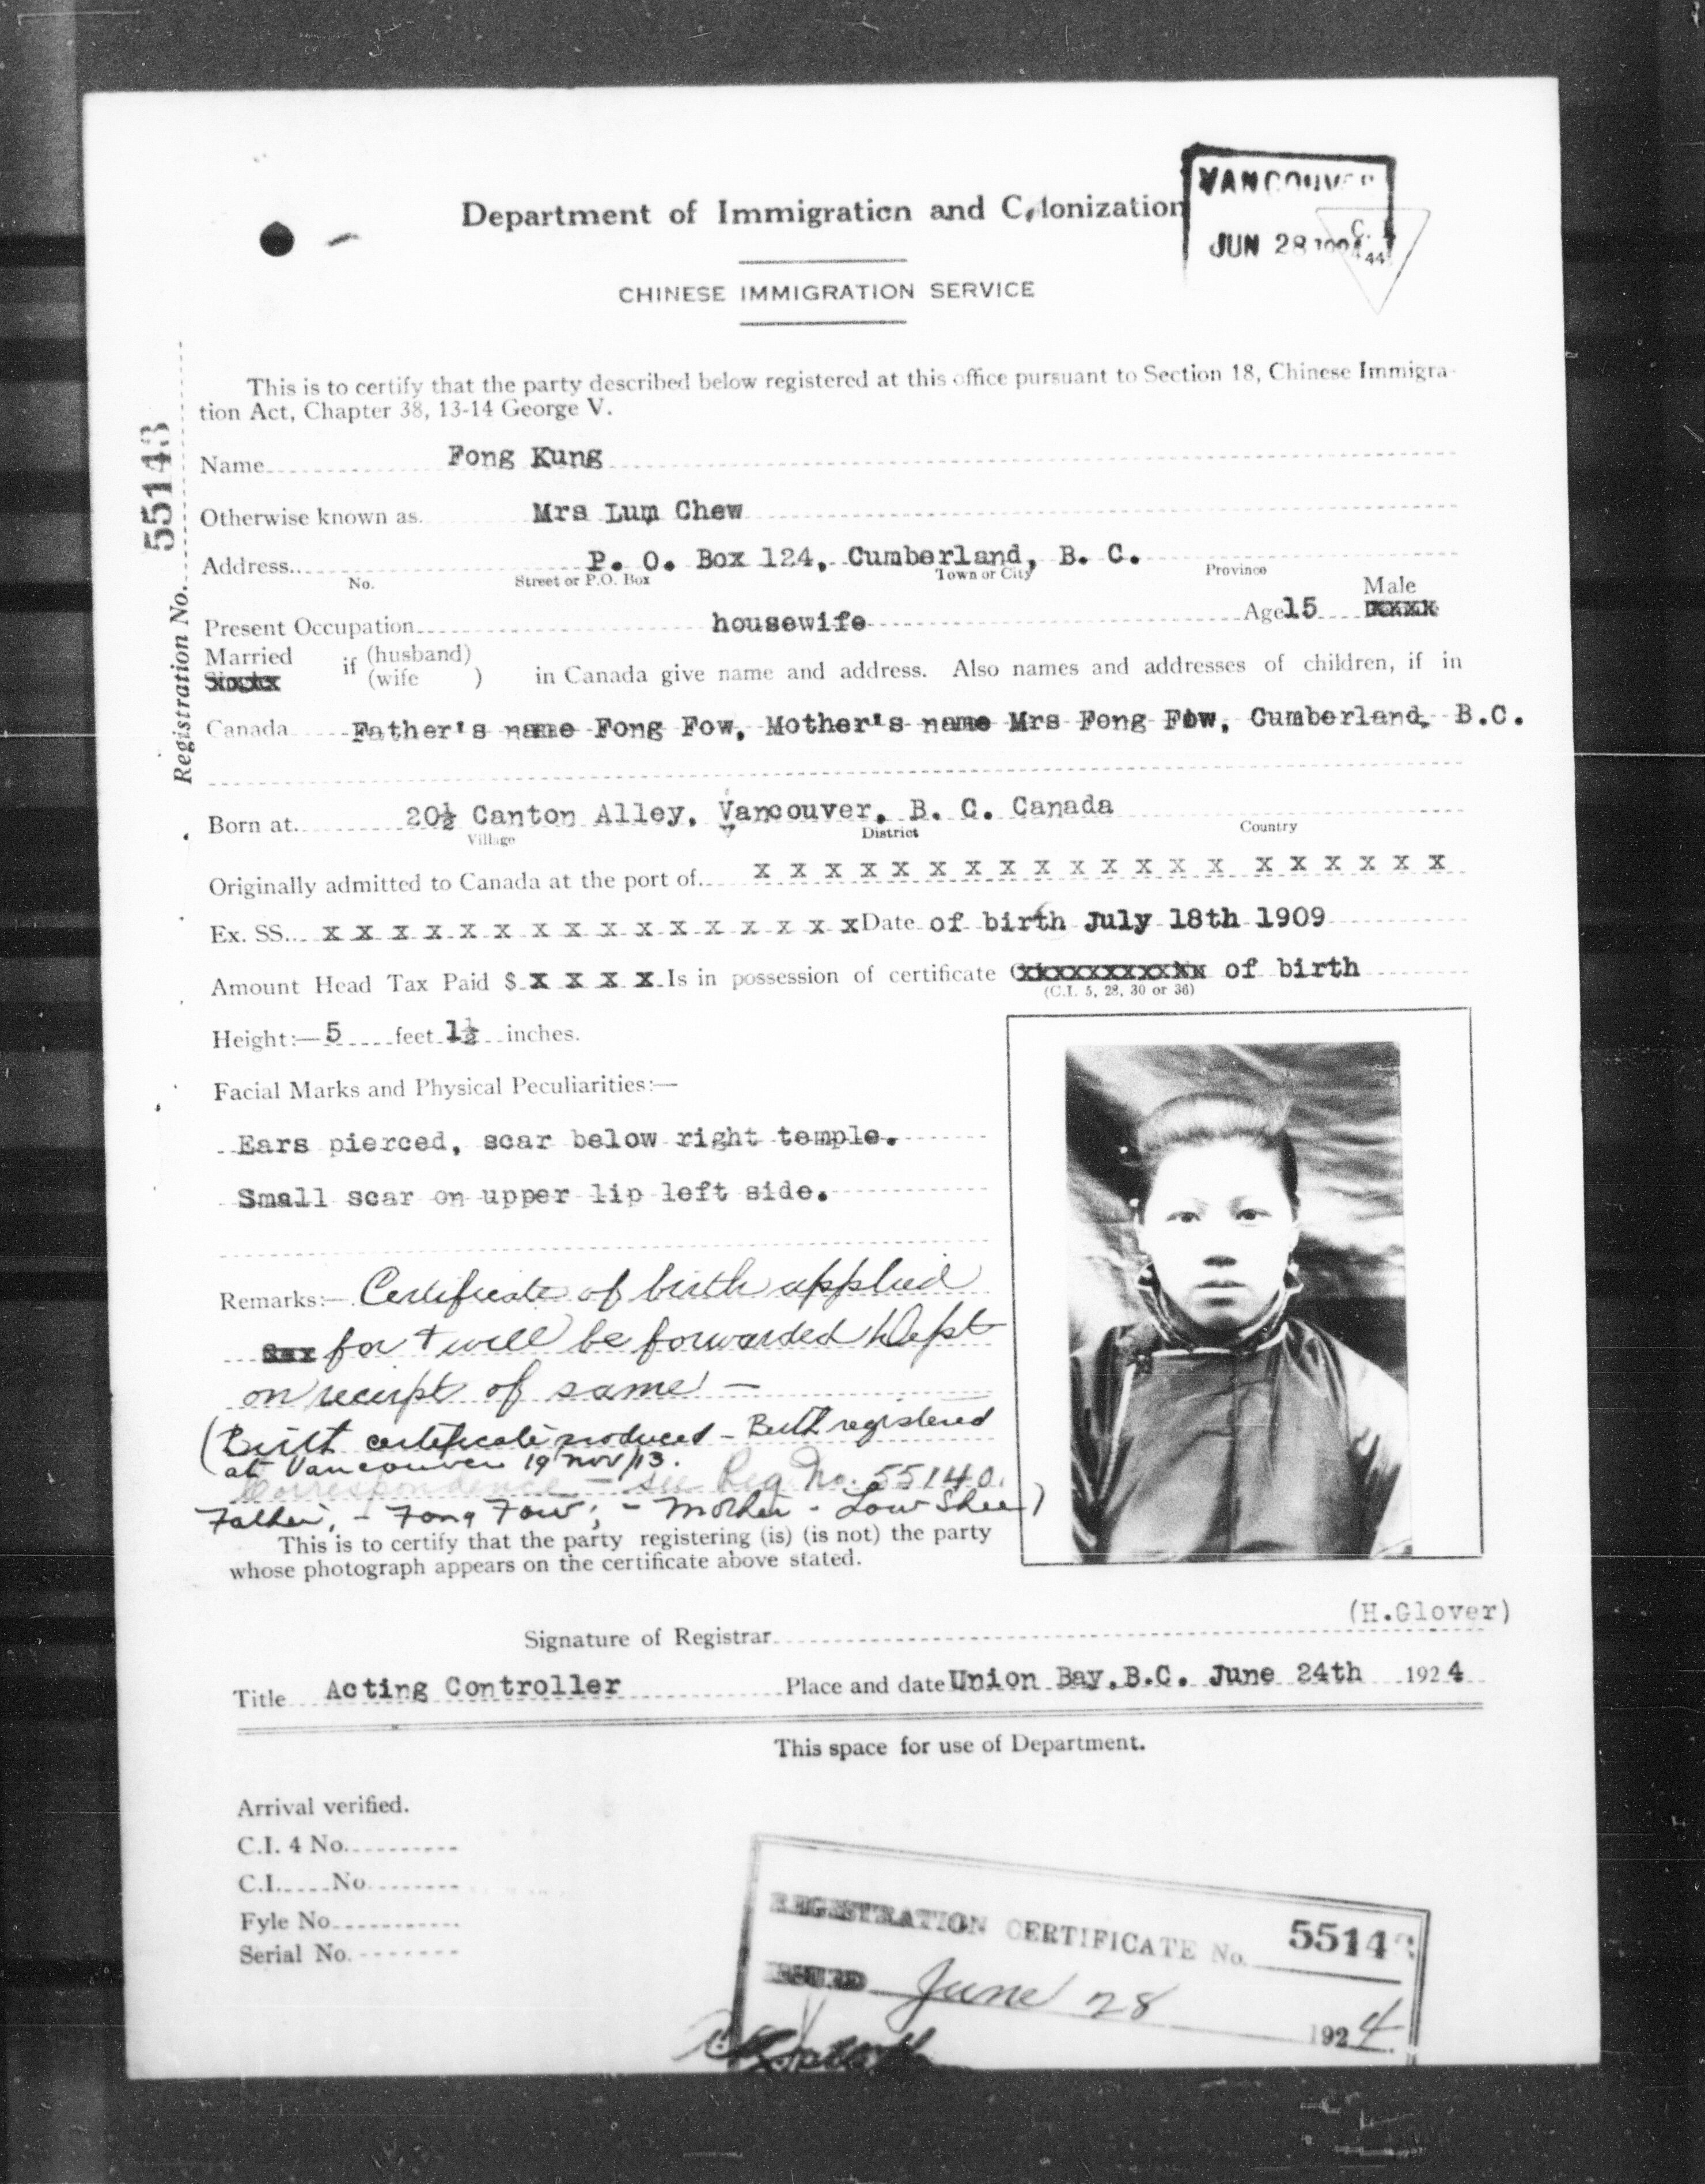 VANCOUVER
JUN 28 1924
C. I.
44
Department of Immigration and Colonization
CHINESE IMMIGRATION SERVICE
This is to certify that the party described below registered at this office pursuant to Section 18, Chinese Immigra-
tion Act, Chapter 38, 13-14 George V.
Registration No. 55143
Name Fong Kung
Otherwise known as. Mrs Lum Chew
Address P. O. Box 124, Cumberland, B. C.
No. Street or P.O. Box Town or City Province
Male
Present Occupation housewife Age 15 xxxx
Married if (husband)
xxxxx (wife ) in Canada give name and address. Also names and addresses of children, if in
Canada Father's name Fong Fow, Mother's name Mrs Fong Fow, Cumberland, B.C.
Born at 20½ Canton Alley, Vancouver, B. C. Canada
Village District Country
Originally admitted to Canada at the port of x x x x x x x x x x x x x x x x x x x x
Ex. SS. x x x x x x x x x x x x x x x x Date of birth July 18th 1909
Amount Head Tax Paid $ x x x x Is in possession of certificate xxxxxxxxxxx of birth
(C.I. 5, 28, 30 or 36)
Height:— 5 feet 1½ inches.
Facial Marks and Physical Peculiarities:—
Ears pierced, scar below right temple.
Small scar on upper lip left side.
Remarks:— Certificate of birth applied
for + will be forwarded Dept
on receipt of same —
(Birth certificate produced – Birth registered
at Vancouver 19 Nov/13.
Correspondence — see Reg. No. 55140.
Father, – Fong Fow; – Mother – Low Shee)
This is to certify that the party registering (is) (is not) the party
whose photograph appears on the certificate above stated.
(H.Glover)
Signature of Registrar
Title Acting Controller Place and date Union Bay, B.C. June 24th 1924
This space for use of Department.
Arrival verified.
C.I. 4 No.
C.I. No
Fyle No
Serial No.
REGISTRATION CERTIFICATE No. 55143
ISSUED June 28 1924